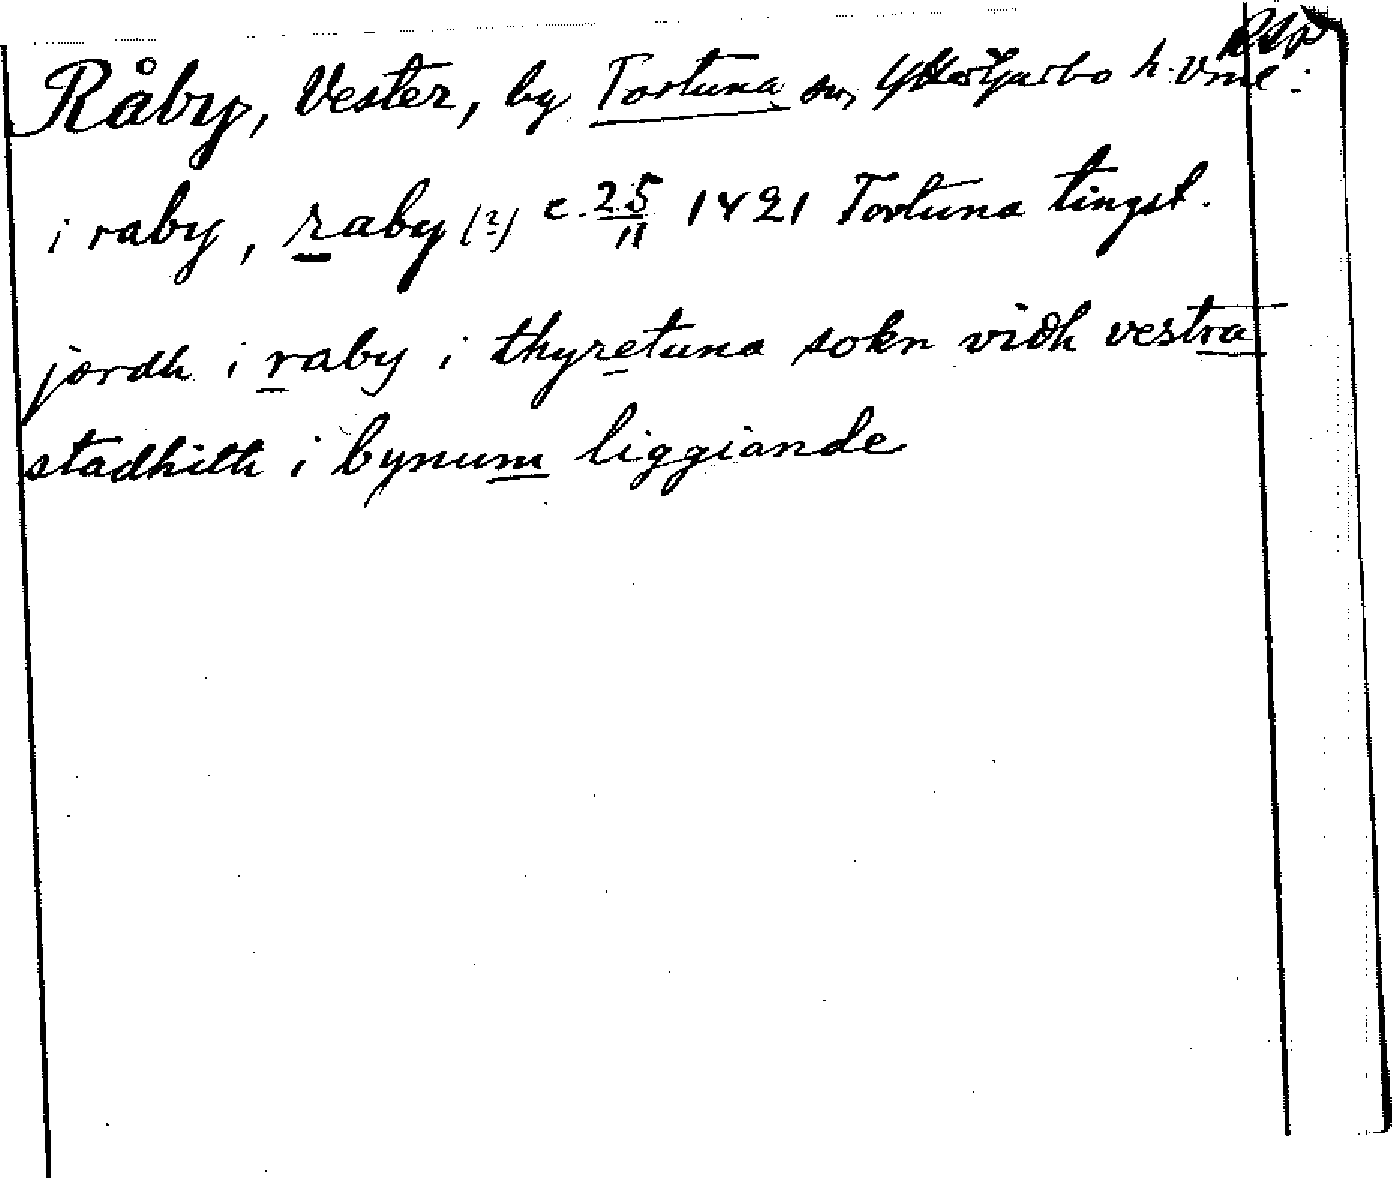 RAp
Råby, Vester, by Tortuna sn, Yttertjurbo h. Vml.
i raby, raby (?) c. 25/11 1421 Tortuna tingst.
jordh i raby i thyretuna sokn vidh vestra
stadhith i bynum liggiande